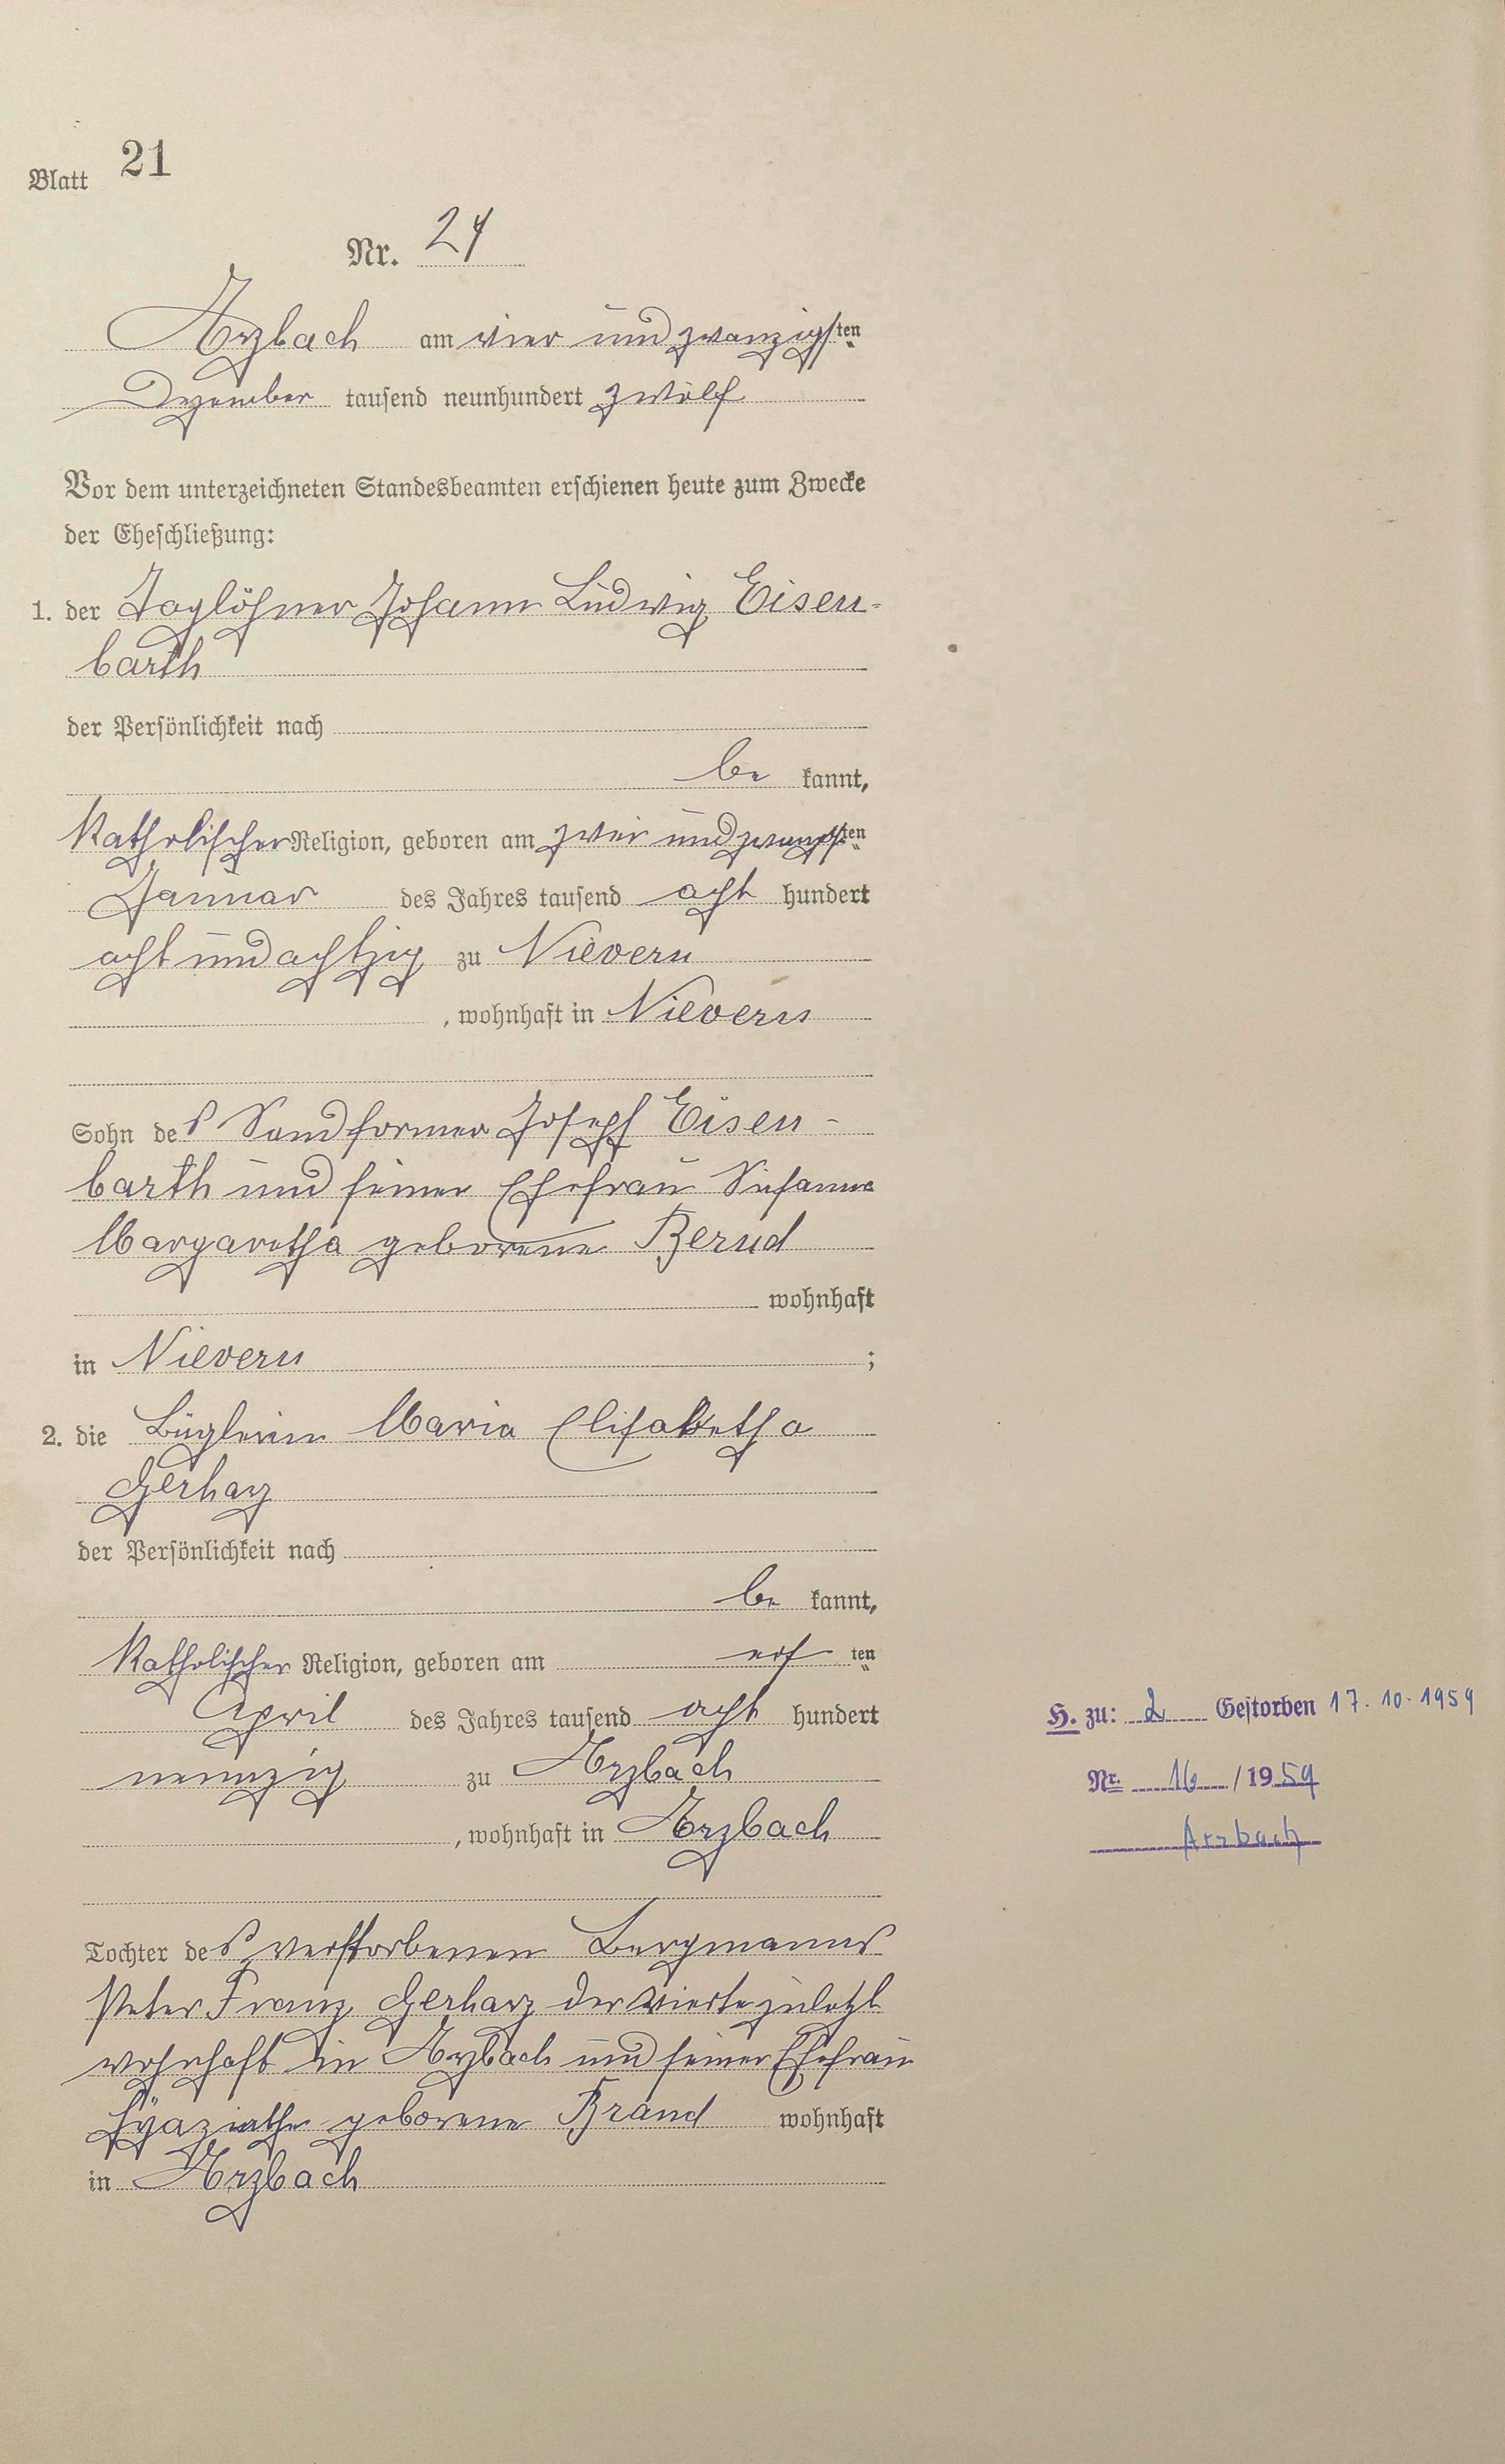 Blatt 21
Nr. 24
Arzbach am vier und zwanzigsten
Dezember tausend neunhundert zwölf
Vor dem unterzeichneten Standesbeamten erschienen heute zum Zwecke
der Eheschließung:
1. der Taglöhner Johann Ludwig Eisen-
barth
der Persönlichkeit nach
be kannt,
Katholischer Religion, geboren am zwei und zwanzigsten
Januar des Jahres tausend acht hundert
acht und achtzig zu Nievern
, wohnhaft in Nievern
Sohn des Sandformer Joseph Eisen-
barth und seiner Ehefrau Susanna
Margaretha geborene Bernd
wohnhaft
in Nievern ;
2. die Büglerin Maria Elisabetha
Gerharz
der Persönlichkeit nach
be kannt,
Katholischer Religion, geboren am ten
April des Jahres tausend acht hundert
neunzig zu Arzbach
, wohnhaft in Arzbach
Tochter des verstorbenen Bergmanns
Peter Franz Gerharz der vierte zuletzt
wohnhaft in Arzbach und seiner Ehefrau
Hyazinthe geborene Brand wohnhaft
in Arzbach
H. zu: 2 Gestorben 17.10.1959
Nr. 16 /1959
Arzbach